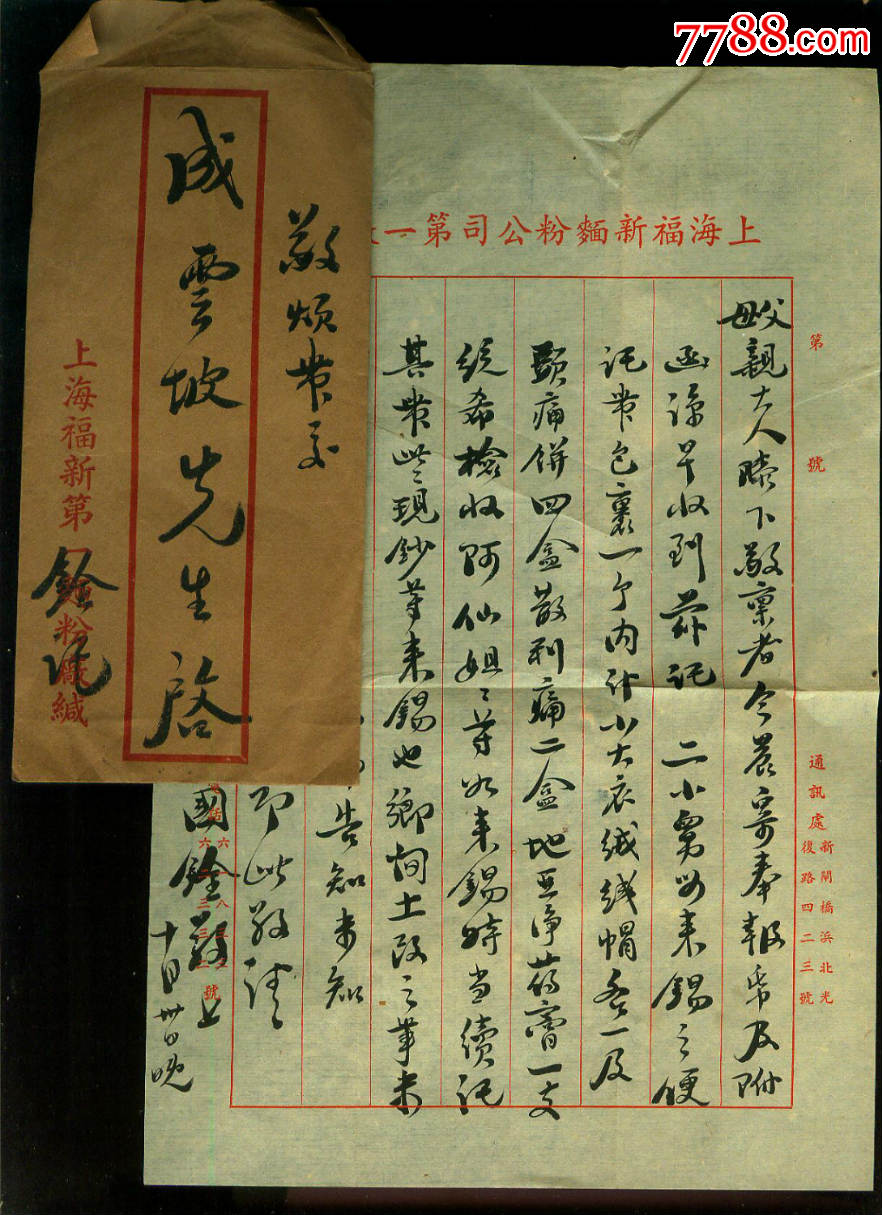 7788.com
敬煩帶交
成雲坡先生啟
上海福新第 粉廠緘
銓托
上海福新麵粉公司第一
第 號
通訊處 新閘橋浜北光
復路四二三號
父母親大人膝下敬稟者今晨寄奉報帋及附
函諒早收到茲託 二小舅母來錫之便
託帶包裹一个內計小大衣絨线帽各一及
頭痛餅四盒散利痛二盒地亞淨葯膏一支
統希檢收阿仙姐 等如來錫時当續託
其帶些現鈔等來錫也鄉間土改之事未
告知未知
即此敬請
國銓敬上
十月卅日晚